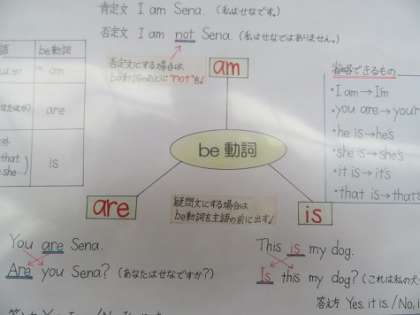 肯定文 I am Sena. (私はせなです。)
否定文 I am not Sena. (私はせなではありません。)
否定文にする場合は
be動詞のあとに"not"を♪
am
be動詞
am
are
is
that
she
省略できるもの
・I am→I'm
・you are→you'r
・he is→he's
・she is→she's
・it is→it's
・that is→that's
be動詞
are
疑問文にする場合は
be動詞を主語の前に出す♪
is
You are Sena.
Are you Sena? (あなたはせなですか?)
This is my dog.
Is this my dog? (これは私の犬
答え方 Yes, it is. / No, i